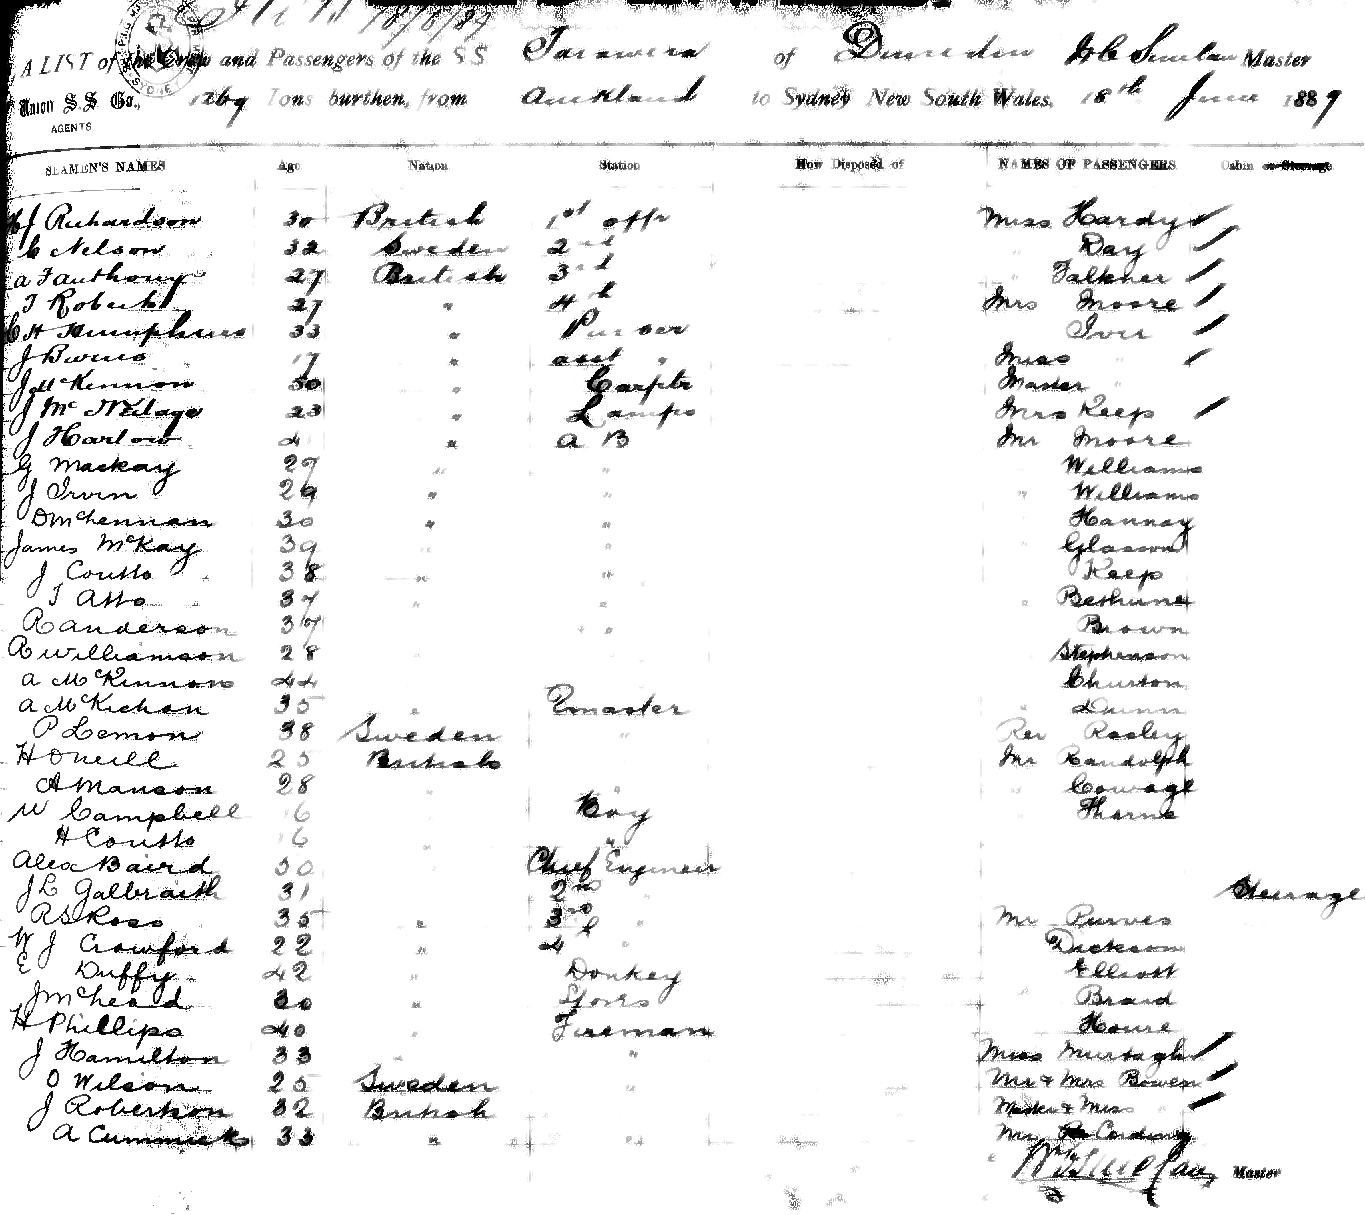 18/6/89
A LIST of the Crew and Passengers of the SS Tarawera of Dunedin Master
Union S.S Co., 1269 Tons burthen, from Auckland to Sydney New South Wales, 18th June 1889
AGENTS
SEAMEN'S NAMES Age Nation Station How Disposed of NAMES OF PASSENGERS Cabin or Steerage
J Richardson 30 British 1st offr Miss Hardy
C Nelson 32 Sweden 2nd " Day
a F anthony 27 British 3rd " Falkner
T Roberts 27 " 4th Mrs Moore
C H Humphries 33 " Purser " Iver
J Burns 17 " asst " Miss "
J McKinnon 50 " Carptr Master "
J McNeilage 23 " Lamps Mrs Keep
J Harlow 4 " a B Mr Moore
G Mackay 27 " " Williams
J Irvin 29 " " " Williams
D McLennan 30 " " Hannay
James McKay 39 " " Glasson
J Coutts 38 " " Keep
T Atto 37 " " " Bethune
R anderson 37 " Brown
R Williamson 28 Stephenson
a McKinnon 44 Churton
a McKichan 35 " Qmaster " Dunn
P Lemon 38 Sweden " Rev Rasley
H Oneill 25 British Mr Randolph
A Manson 28 " " Cowage
W Campbell 16 " Boy Thorne
H Coutts 16 " "
Alex Baird 50 Chief Engineer
J L Galbraith 31 " 2nd " Steerage
R S Ross 35 " 3rd Mr Purves
W J Crawford 22 " 4th " Dickson
E Duffy 42 " Donkey " Elliott
J McLeod 30 " Stores " Braid
H Phillips 40 " Fireman " Houre
J Hamilton 33 " " Miss Murtagh
O Wilson 25 Sweden " Mr & Mrs Bowen
J Robertson 32 British Master & Miss "
A Cummick 33 " " Mr Cording
Master